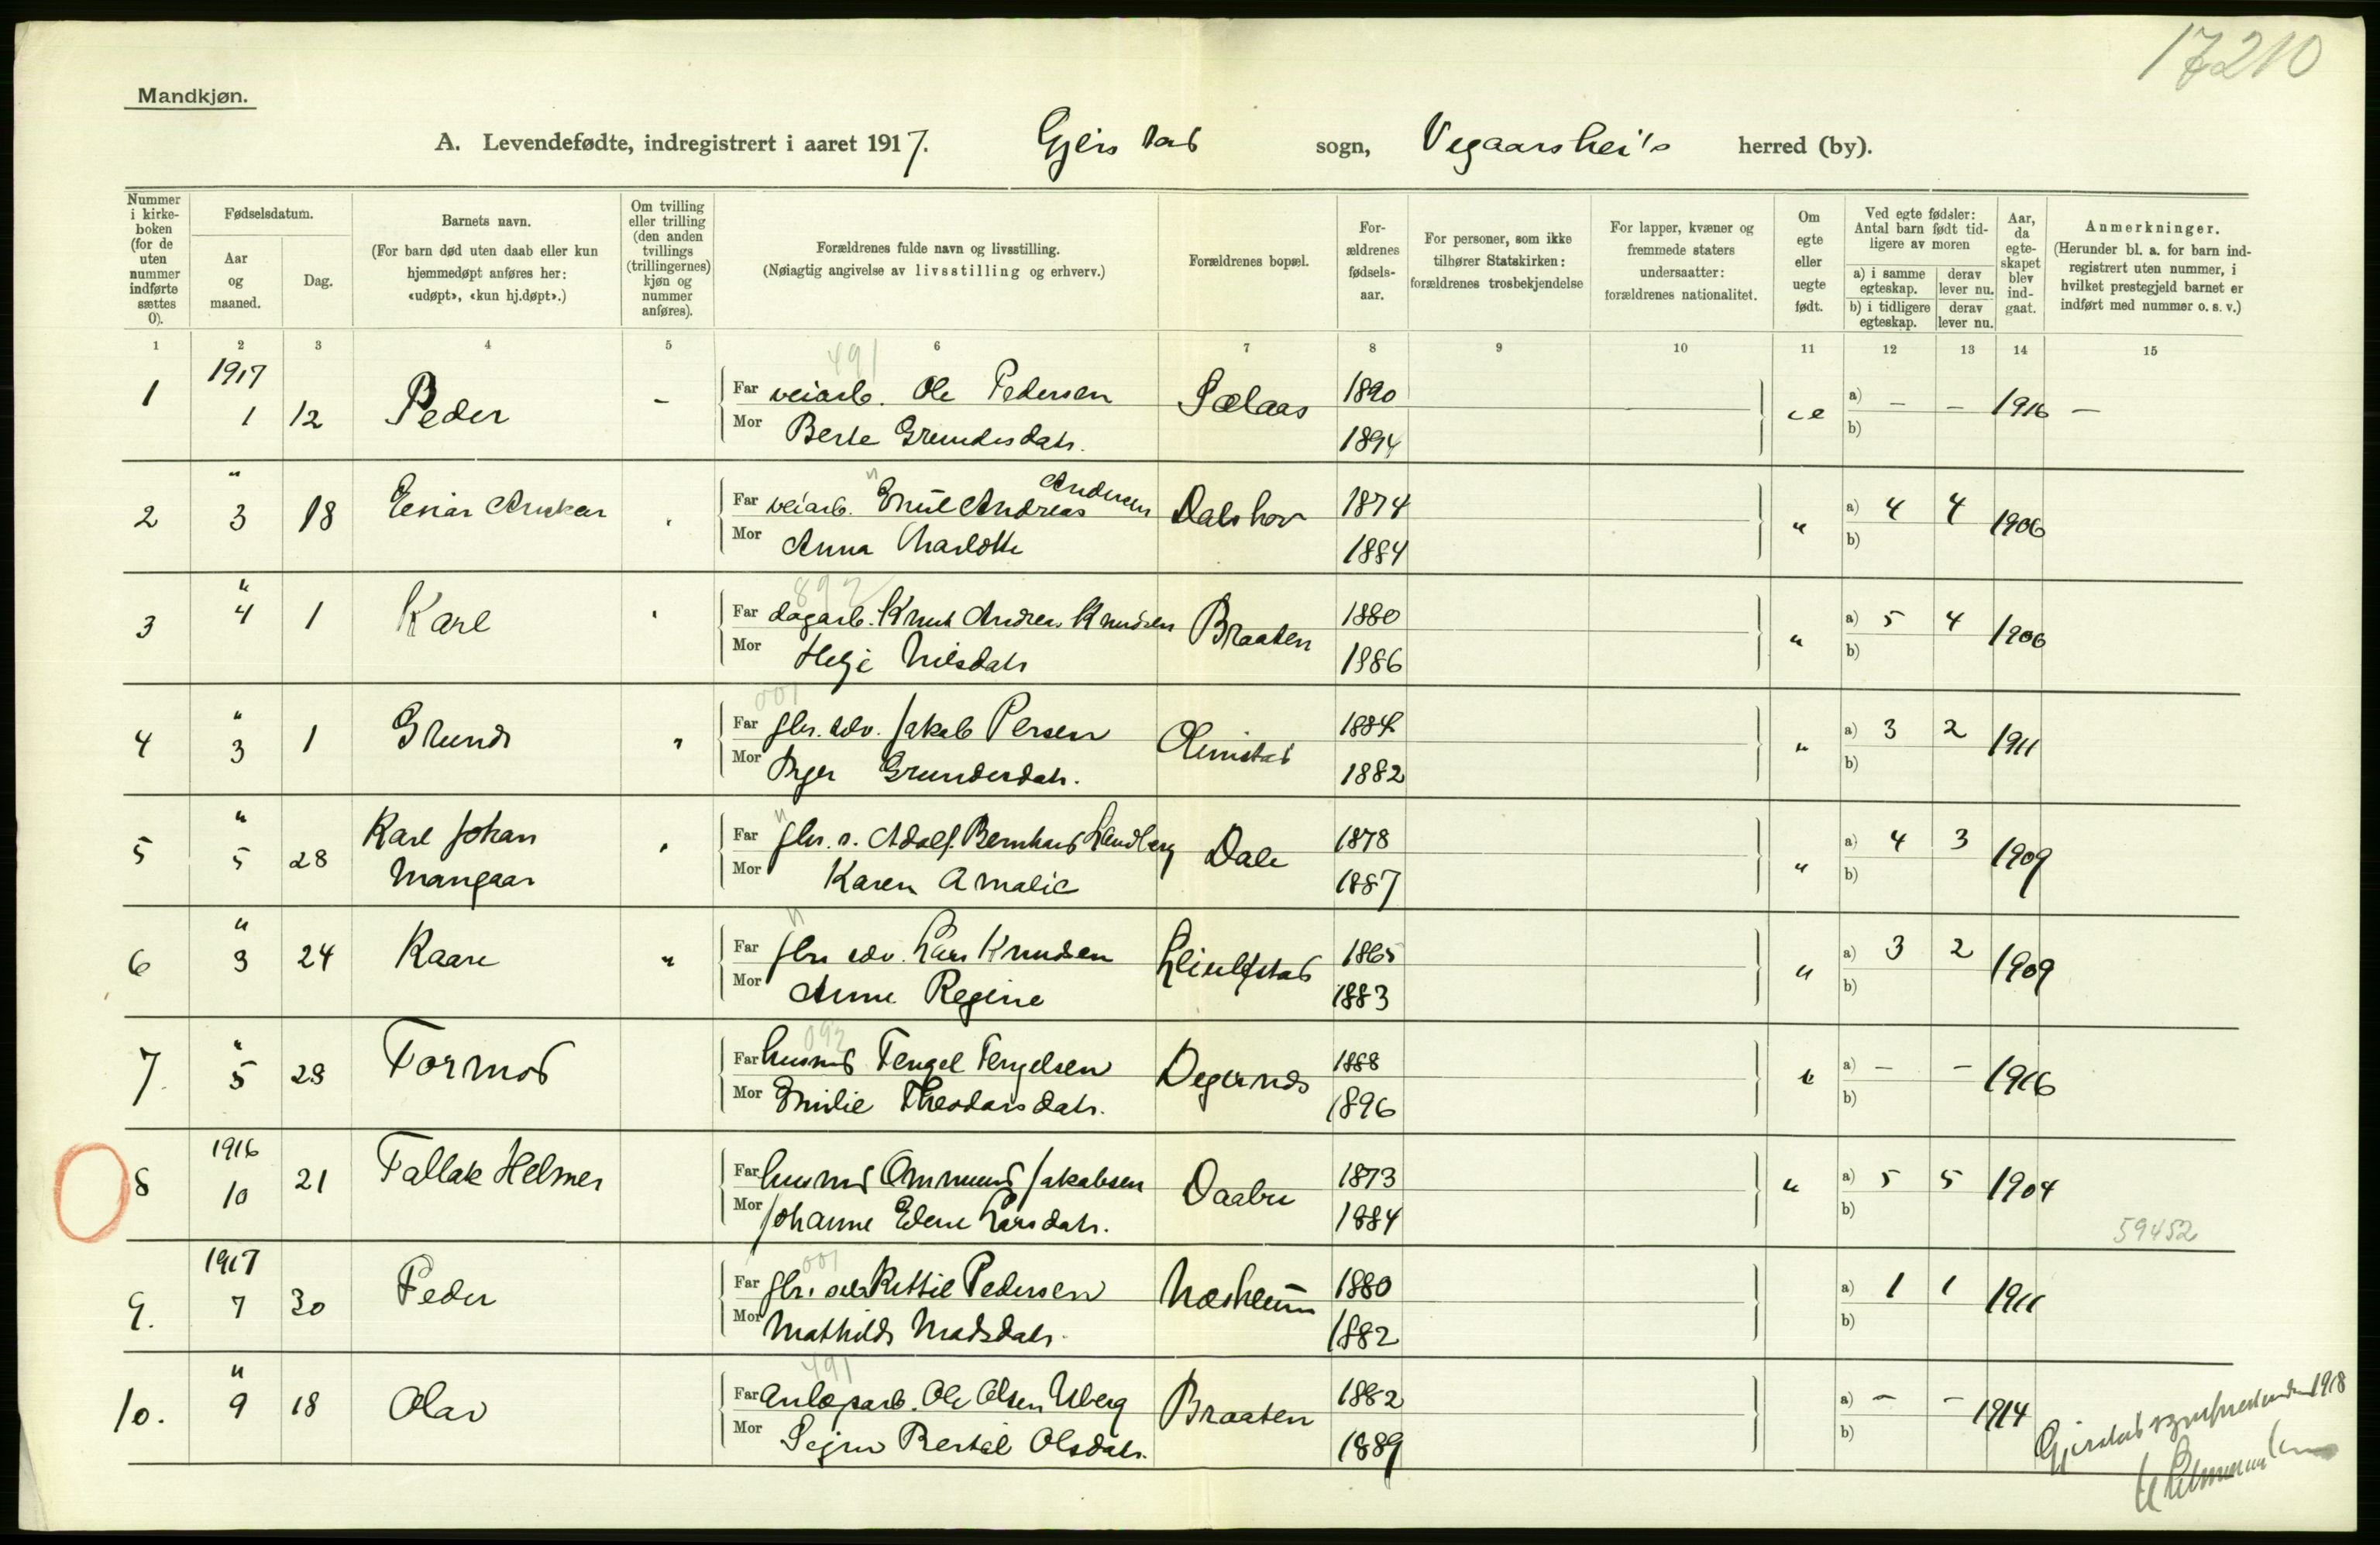 17210
Mandkjøn.
A. Levendefødte, indregistrert i aaret 1917. Gjerstad sogn, Vegaarshei's herred (by).
Nummer i kirkeboken (for de uten nummer indførte sættes 0).
Fødselsdatum.
Aar og maaned.
Dag.
Barnets navn.
(For barn død uten daab eller kun hjemmedøpt anføres her: «udøpt», «kun hj.døpt».)
Om tvilling eller trilling (den anden tvillings (trillingernes) kjøn og nummer anføres).
Forældrenes fulde navn og livsstilling.
(Nøiagtig angivelse av livsstilling og erhverv.)
Forældrenes bopæl.
For-ældrenes fødsels-aar.
For personer, som ikke tilhører Statskirken: forældrenes trosbekjendelse
For lapper, kvæner og fremmede staters undersaatter: forældrenes nationalitet.
Om egte eller uegte født.
Ved egte fødsler: Antal barn født tidligere av moren
a) i samme egteskap. derav lever nu.
b) i tidligere egteskap. derav lever nu.
Aar, da egte-skapet blev ind-gaat.
Anmerkninger.
(Herunder bl. a. for barn ind-registrert uten nummer, i hvilket prestegjeld barnet er indført med nummer o. s. v.)
1 2 3 4 5 6 7 8 9 10 11 12 13 14 15
491
1 1917 1 12 Peder - Far veiarb. Ole Pedersen Sælaas 1890 a) - - 1916 -
Mor Berte Grundesdatr. 1894 b)
2 " 3 18 Einar Far veiarb. Emil Andreas Andersen Dalshov 1874 " a) 4 4 1906
Mor Anna Charlotte 1884 b)
892
3 " 4 1 Karl Far dagarb. Knut Andreas Knudsen Braaten 1880 " a) 5 4 1906
Mor Helje Nilsdatr 1886 b)
001
4 " 3 1 Grunde " Far gbr. selv. Jakob Persen 1884 " a) 3 2 1911
Mor Inger Grundesdatr. 1882 b)
5 " 5 28 Karl Johan Mangaar Far gbr. s. Adolf Bernhard Lundberg Dale 1878 " a) 4 3 1909
Mor Karen Amalie 1887 b)
6 " 3 24 Kaare " Far gbr selv. Lars Knudsen Leiulfstad 1865 " a) 3 2 1909
Mor Anne Regine 1883 b)
092
7. " 5 28 Tormod Far husmd Tengel Tengelsen Degernes 1888 " a) - - 1916
Mor Emilie Theodorsdatr. 1896 b)
8 1916 10 21 Tallak Helmer Far husmd Ommund Jakobsen Daabu 1873 " a) 5 5 1904
Mor Johanne Edene Larsdatr. 1884 b)
59452
001
9. 1917 7 30 Peder Far gbr. selv Kittil Pedersen Næsheim 1880 a) 1 1 1911
Mor Mathilde Madsdatr. 1882 b)
491
10. " 9 18 Olav Far Anlægsarb. Ole Olsen Uberg Braaten 1882 a) - - 1914
Mor Sejne Bertal Olsdatr. 1889 b)
Gjerstad 1918